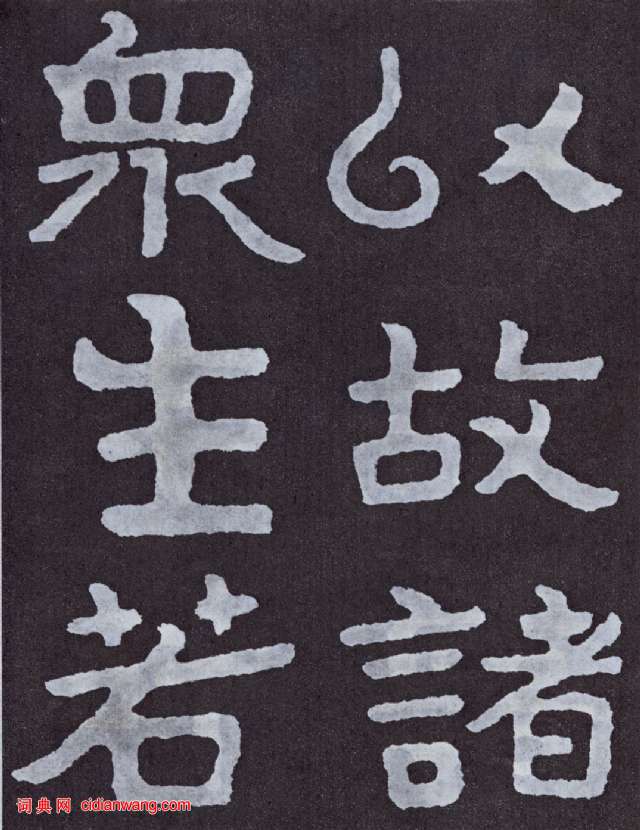 以故諸
衆生若
词典网 cidianwang.com